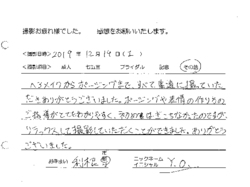 撮影お疲れ様でした。 感想をお願いいたします。
<撮影日時> 2019年12月14日(土)
<撮影内容> 成人 七五三 ブライダル 記念 その他
ヘアメイクからポージングまで、すべて素直に撮っていた
だきありがとうございました。ポージングや表情の作り方の
ご指導がとてもわかりやすく、初めはぎこちなかったのですが
リラックスして撮影していただくことができました。ありがとう
ございました。
お住まい
ニックネーム
イニシャル Y.O.